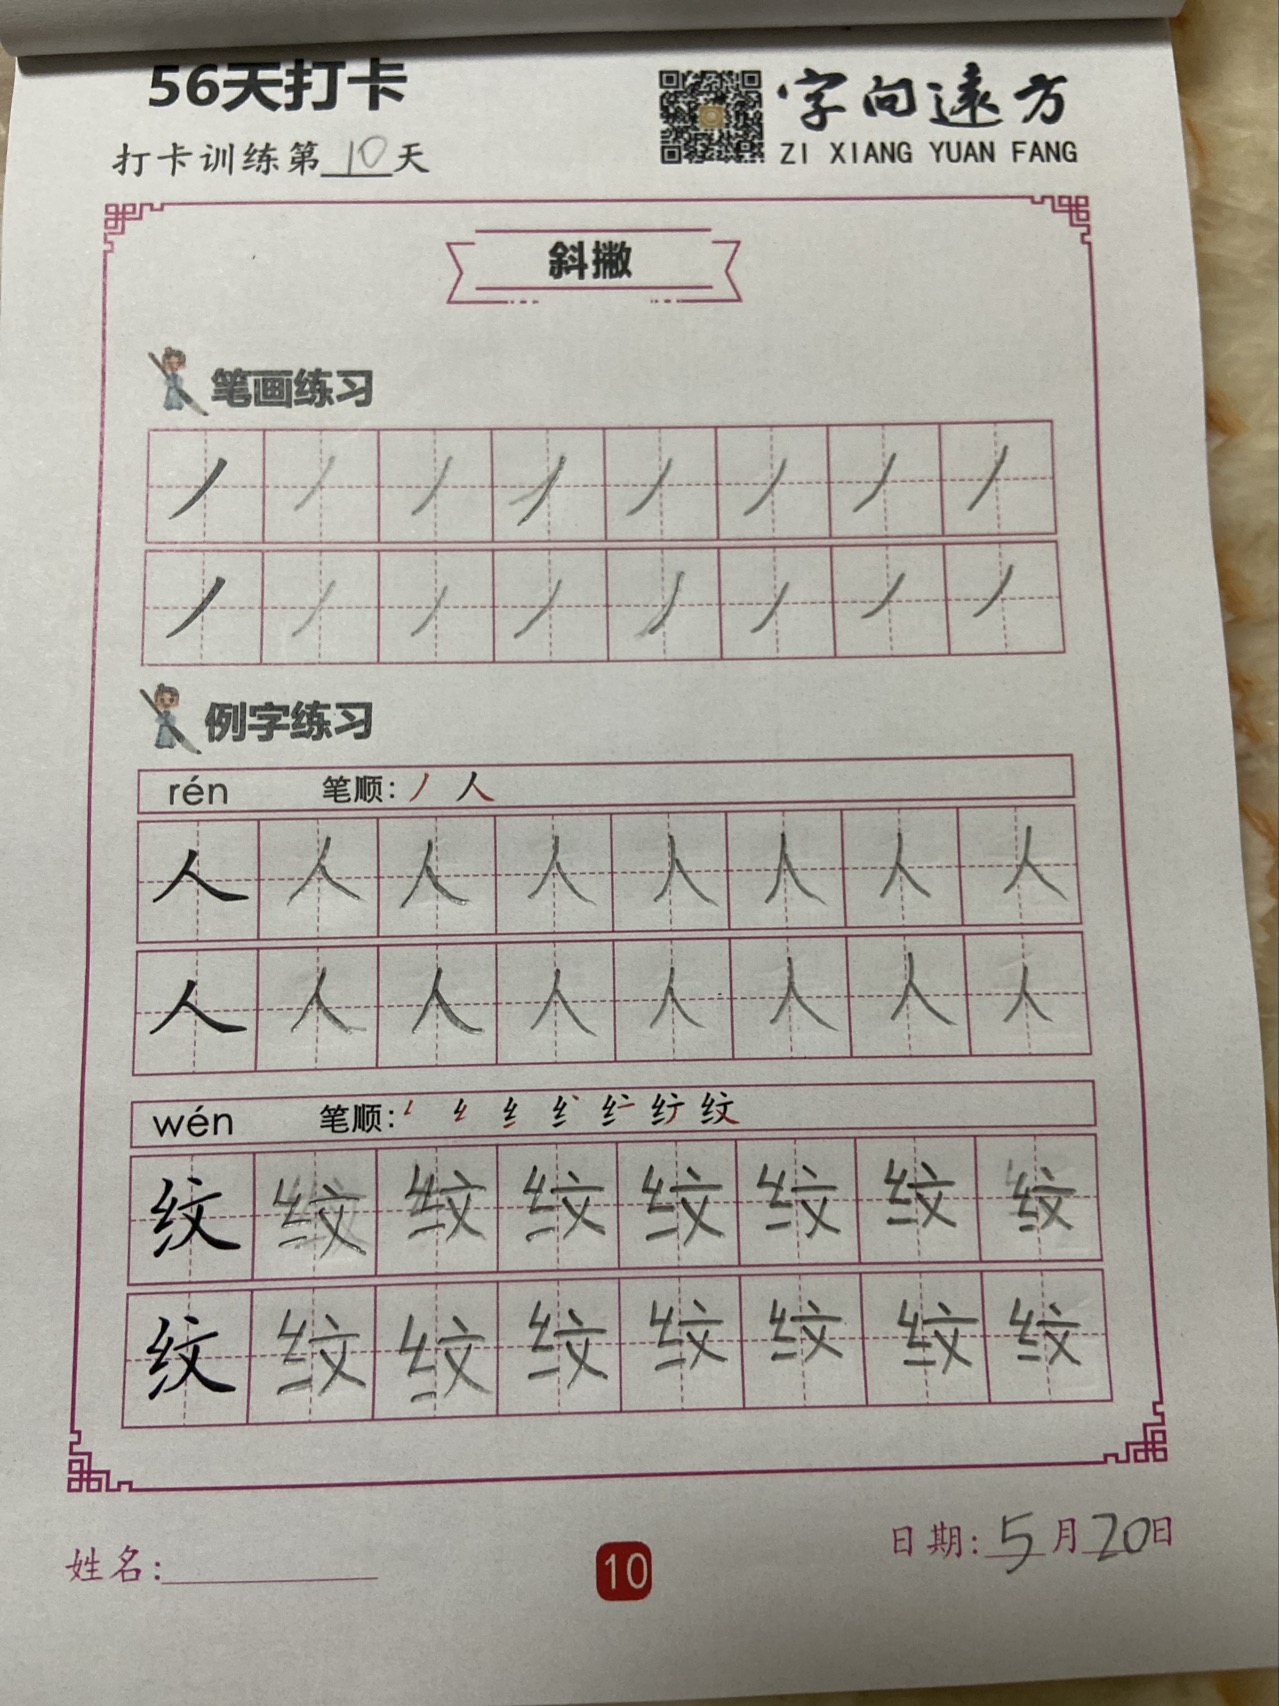 56天打卡
字向遠方
打卡训练第10天
ZI XIANG YUAN FANG
斜撇
笔画练习
丿丿丿丿丿丿丿丿
丿丿丿丿丿丿丿丿
例字练习
rén 笔顺:丿 人
人人人人人人人人
人人人人人人人人
wén 笔顺: 纹
纹纹纹纹纹纹纹纹
纹纹纹纹纹纹纹纹
姓名:
10
日期:5月20日